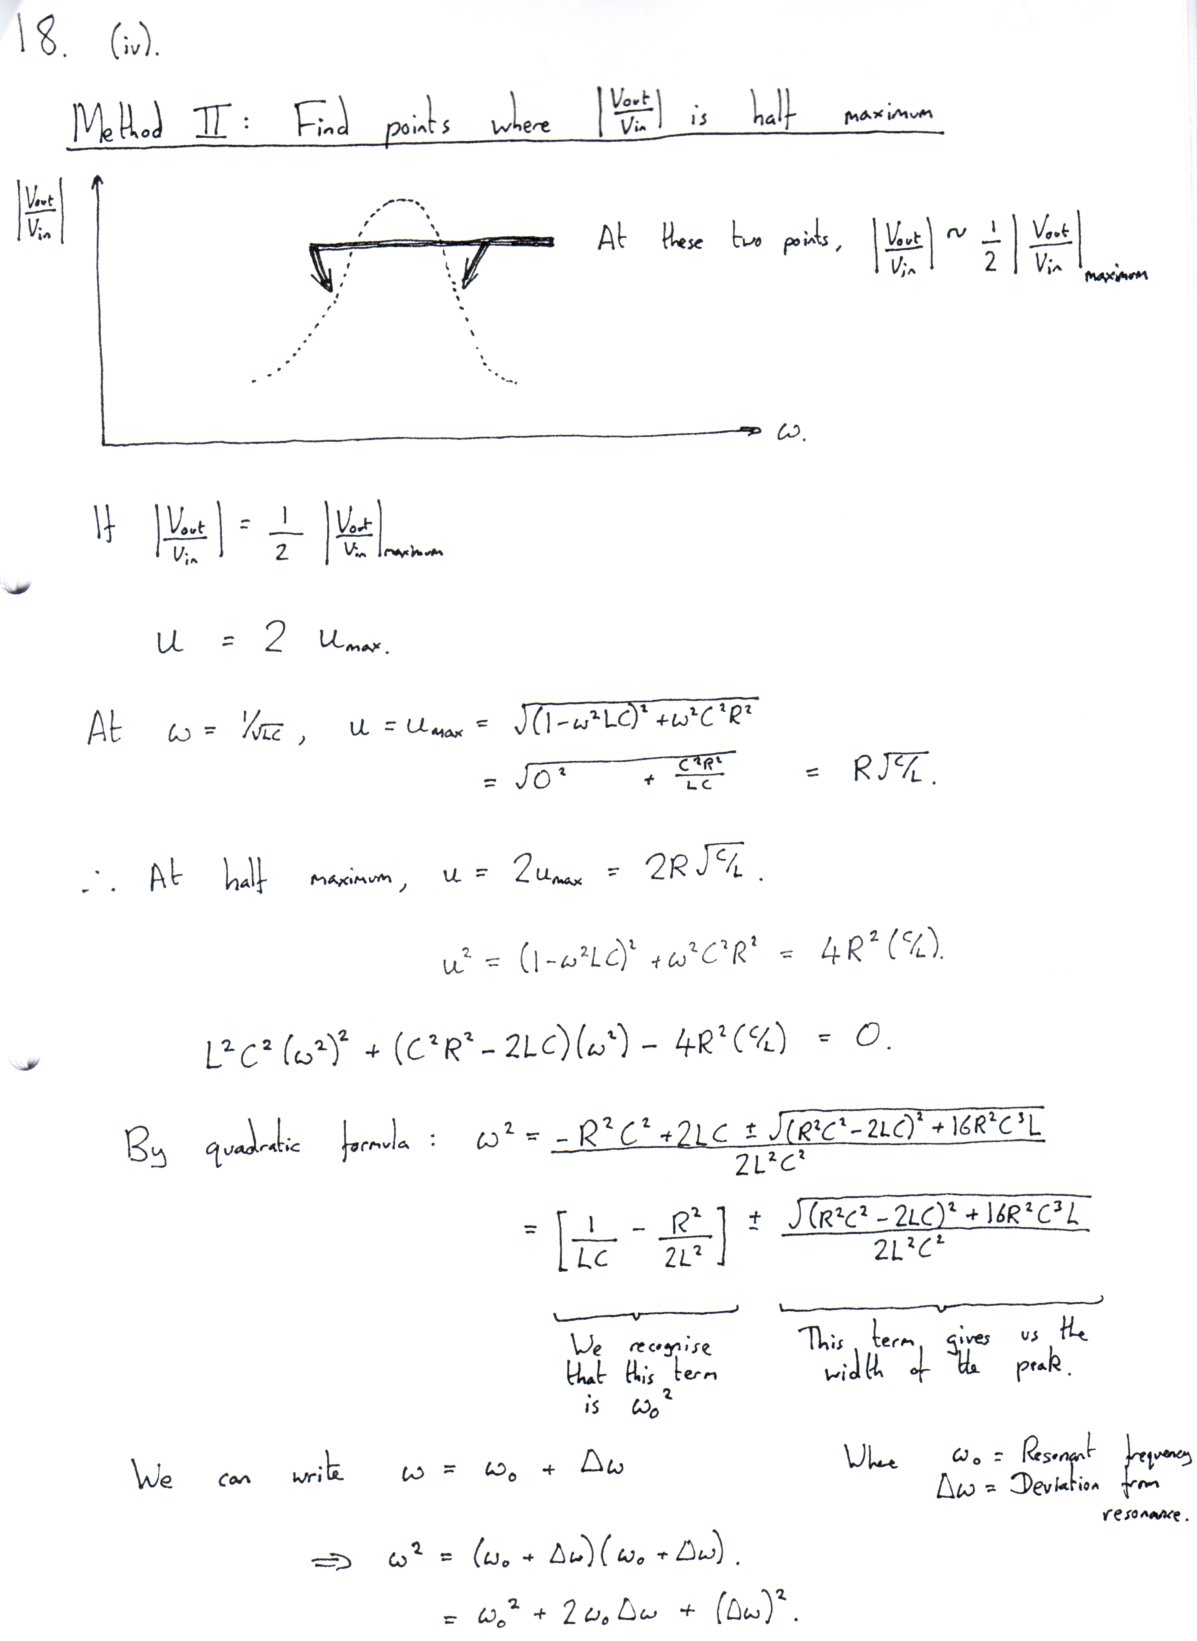 18. (iv).
Method II: Find points where |Vout/Vin| is half maximum
|Vout/Vin|
At these two points, |Vout/Vin| ~ 1/2 |Vout/Vin|maximum
ω.
If |Vout/Vin| = 1/2 |Vout/Vin|maximum
u = 2 umax.
At ω = 1/√LC, u = umax = √((1-ω²LC)² + ω²C²R²)
= √(0² + C²R²/LC) = R√(C/L).
∴ At half maximum, u = 2umax = 2R√(C/L).
u² = (1-ω²LC)² + ω²C²R² = 4R²(C/L).
L²C²(ω²)² + (C²R² - 2LC)(ω²) - 4R²(C/L) = 0.
By quadratic formula: ω² = (-R²C² + 2LC ± √((R²C² - 2LC)² + 16R²C³L))/2L²C²
= [1/LC - R²/2L²] ± √((R²C² - 2LC)² + 16R²C³L)/2L²C²
We recognise
that this term
is ω₀²
This term gives us the
width of the peak.
We can write ω = ω₀ + Δω
Where ω₀ = Resonant frequency
Δω = Deviation from
resonance.
⇒ ω² = (ω₀ + Δω)(ω₀ + Δω).
= ω₀² + 2ω₀Δω + (Δω)².